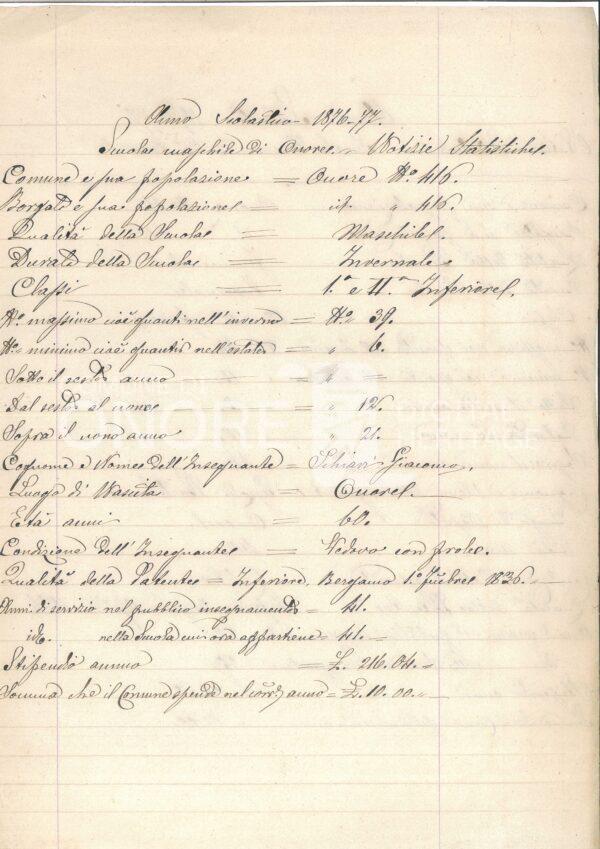 Anno Scolastico 1876-77.
Scuola maschile di Onore. Notizie Statistiche.
Comune e sua popolazione = Onore N.o 416.
Borgate e sua popolazione = id. " 416.
Qualità della Scuola = Maschile.
Durata della Scuola = Invernale.
Classi = 1.a e II.a Inferiore.
N.o massimo cioè quanti nell'inverno = N.o 39.
N.o minimo cioè quanti nell'estate = " 6.
Sotto il sesto anno = "
Dal sesto al nono = " 12.
Sopra il nono anno " 21.
Cognome e Nome dell'Insegnante = Schiavi Giacomo.
Luogo di Nascita = Onore.
Età anni = 60.
Condizione dell'Insegnante = Vedovo con prole.
Qualità della Patente = Inferiore, Bergamo 1.o 1836.
Anni di servizio nel pubblico insegnamento = 41.
id. nella Scuola cui ora appartiene = 41.
Stipendio annuo = L. 216.04.
Somma che il Comune spende nel corr. anno = L. 10.00.